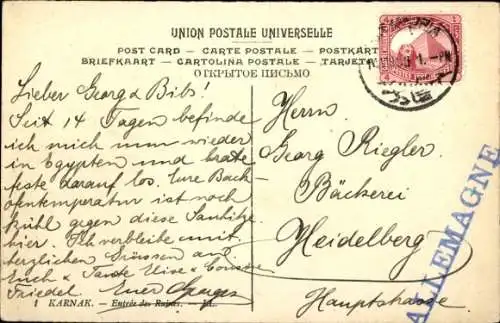 UNION POSTALE UNIVERSELLE
POST CARD — CARTE POSTALE — POSTKART
BRIEFKAART — CARTOLINA POSTALE — TARJETA
ОТКРЫТОЕ ПИСЬМО
Lieber Georg & Bibs!
Seit 14 Tagen befinde
ich mich nun wieder
in Egypten und brate
feste darauf los. Eure Back-
ofentemperatur ist noch
kühl gegen diese
hier. Ich verbleibe mit
herzlichen Grüssen an
Euch & Tante Elise & Cousine
Friedel. Euer Georges
1 KARNAK. — Entrée des Ruines. — LL.
Herrn
Georg Riegler
Bäckerei
Heidelberg
Hauptstrasse
ALLEMAGNE